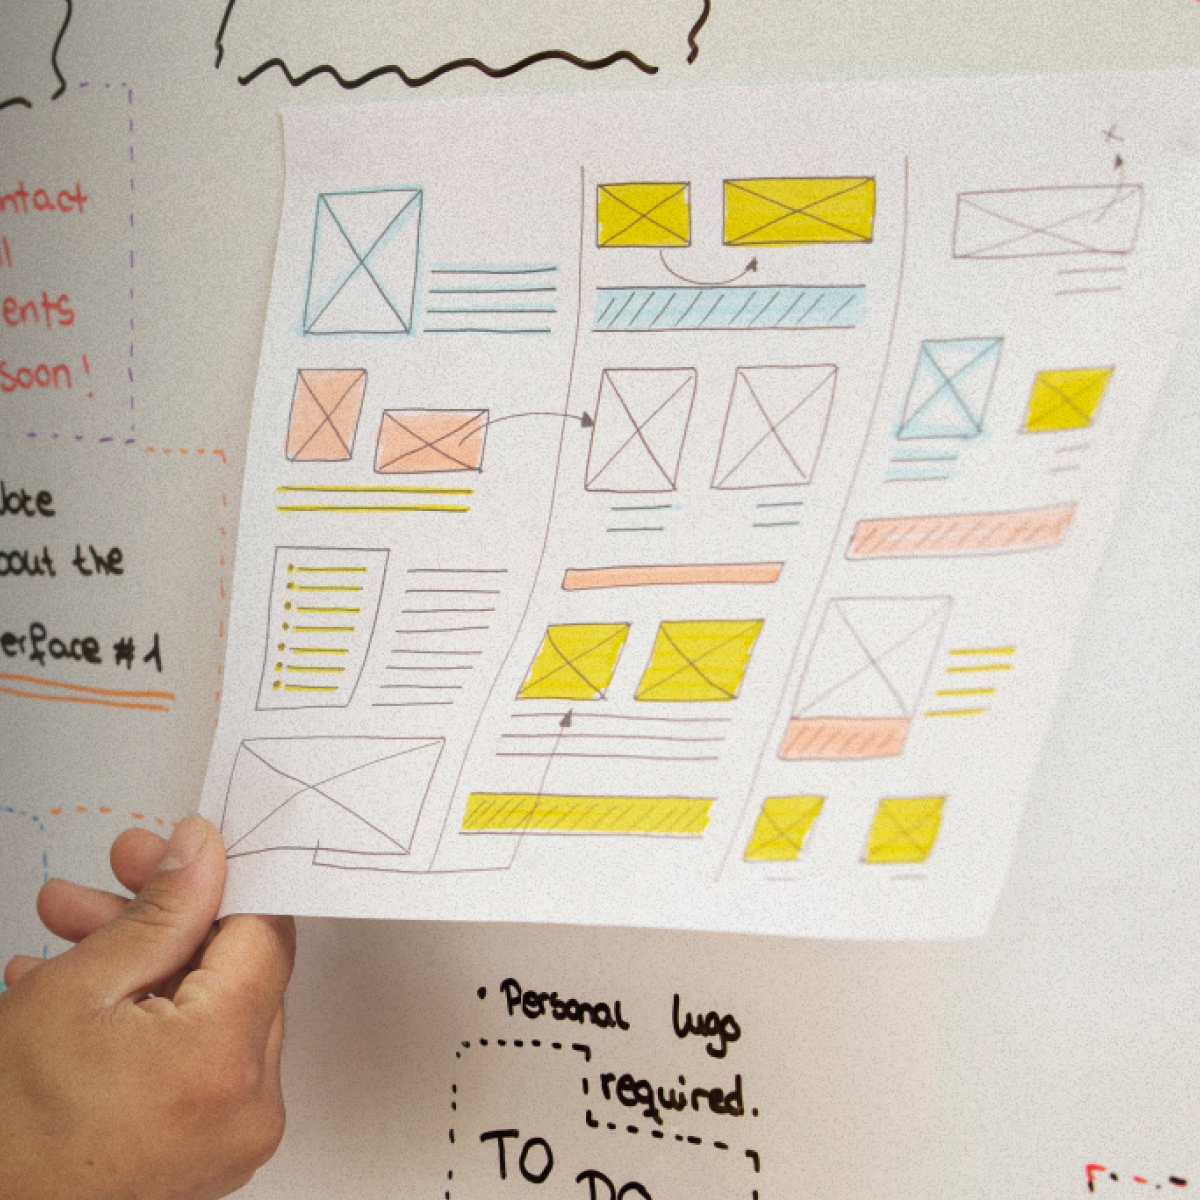 ntact
l
ents
soon!
ote
bout the
erface #1
• Personal lugo
required.
TO
DO